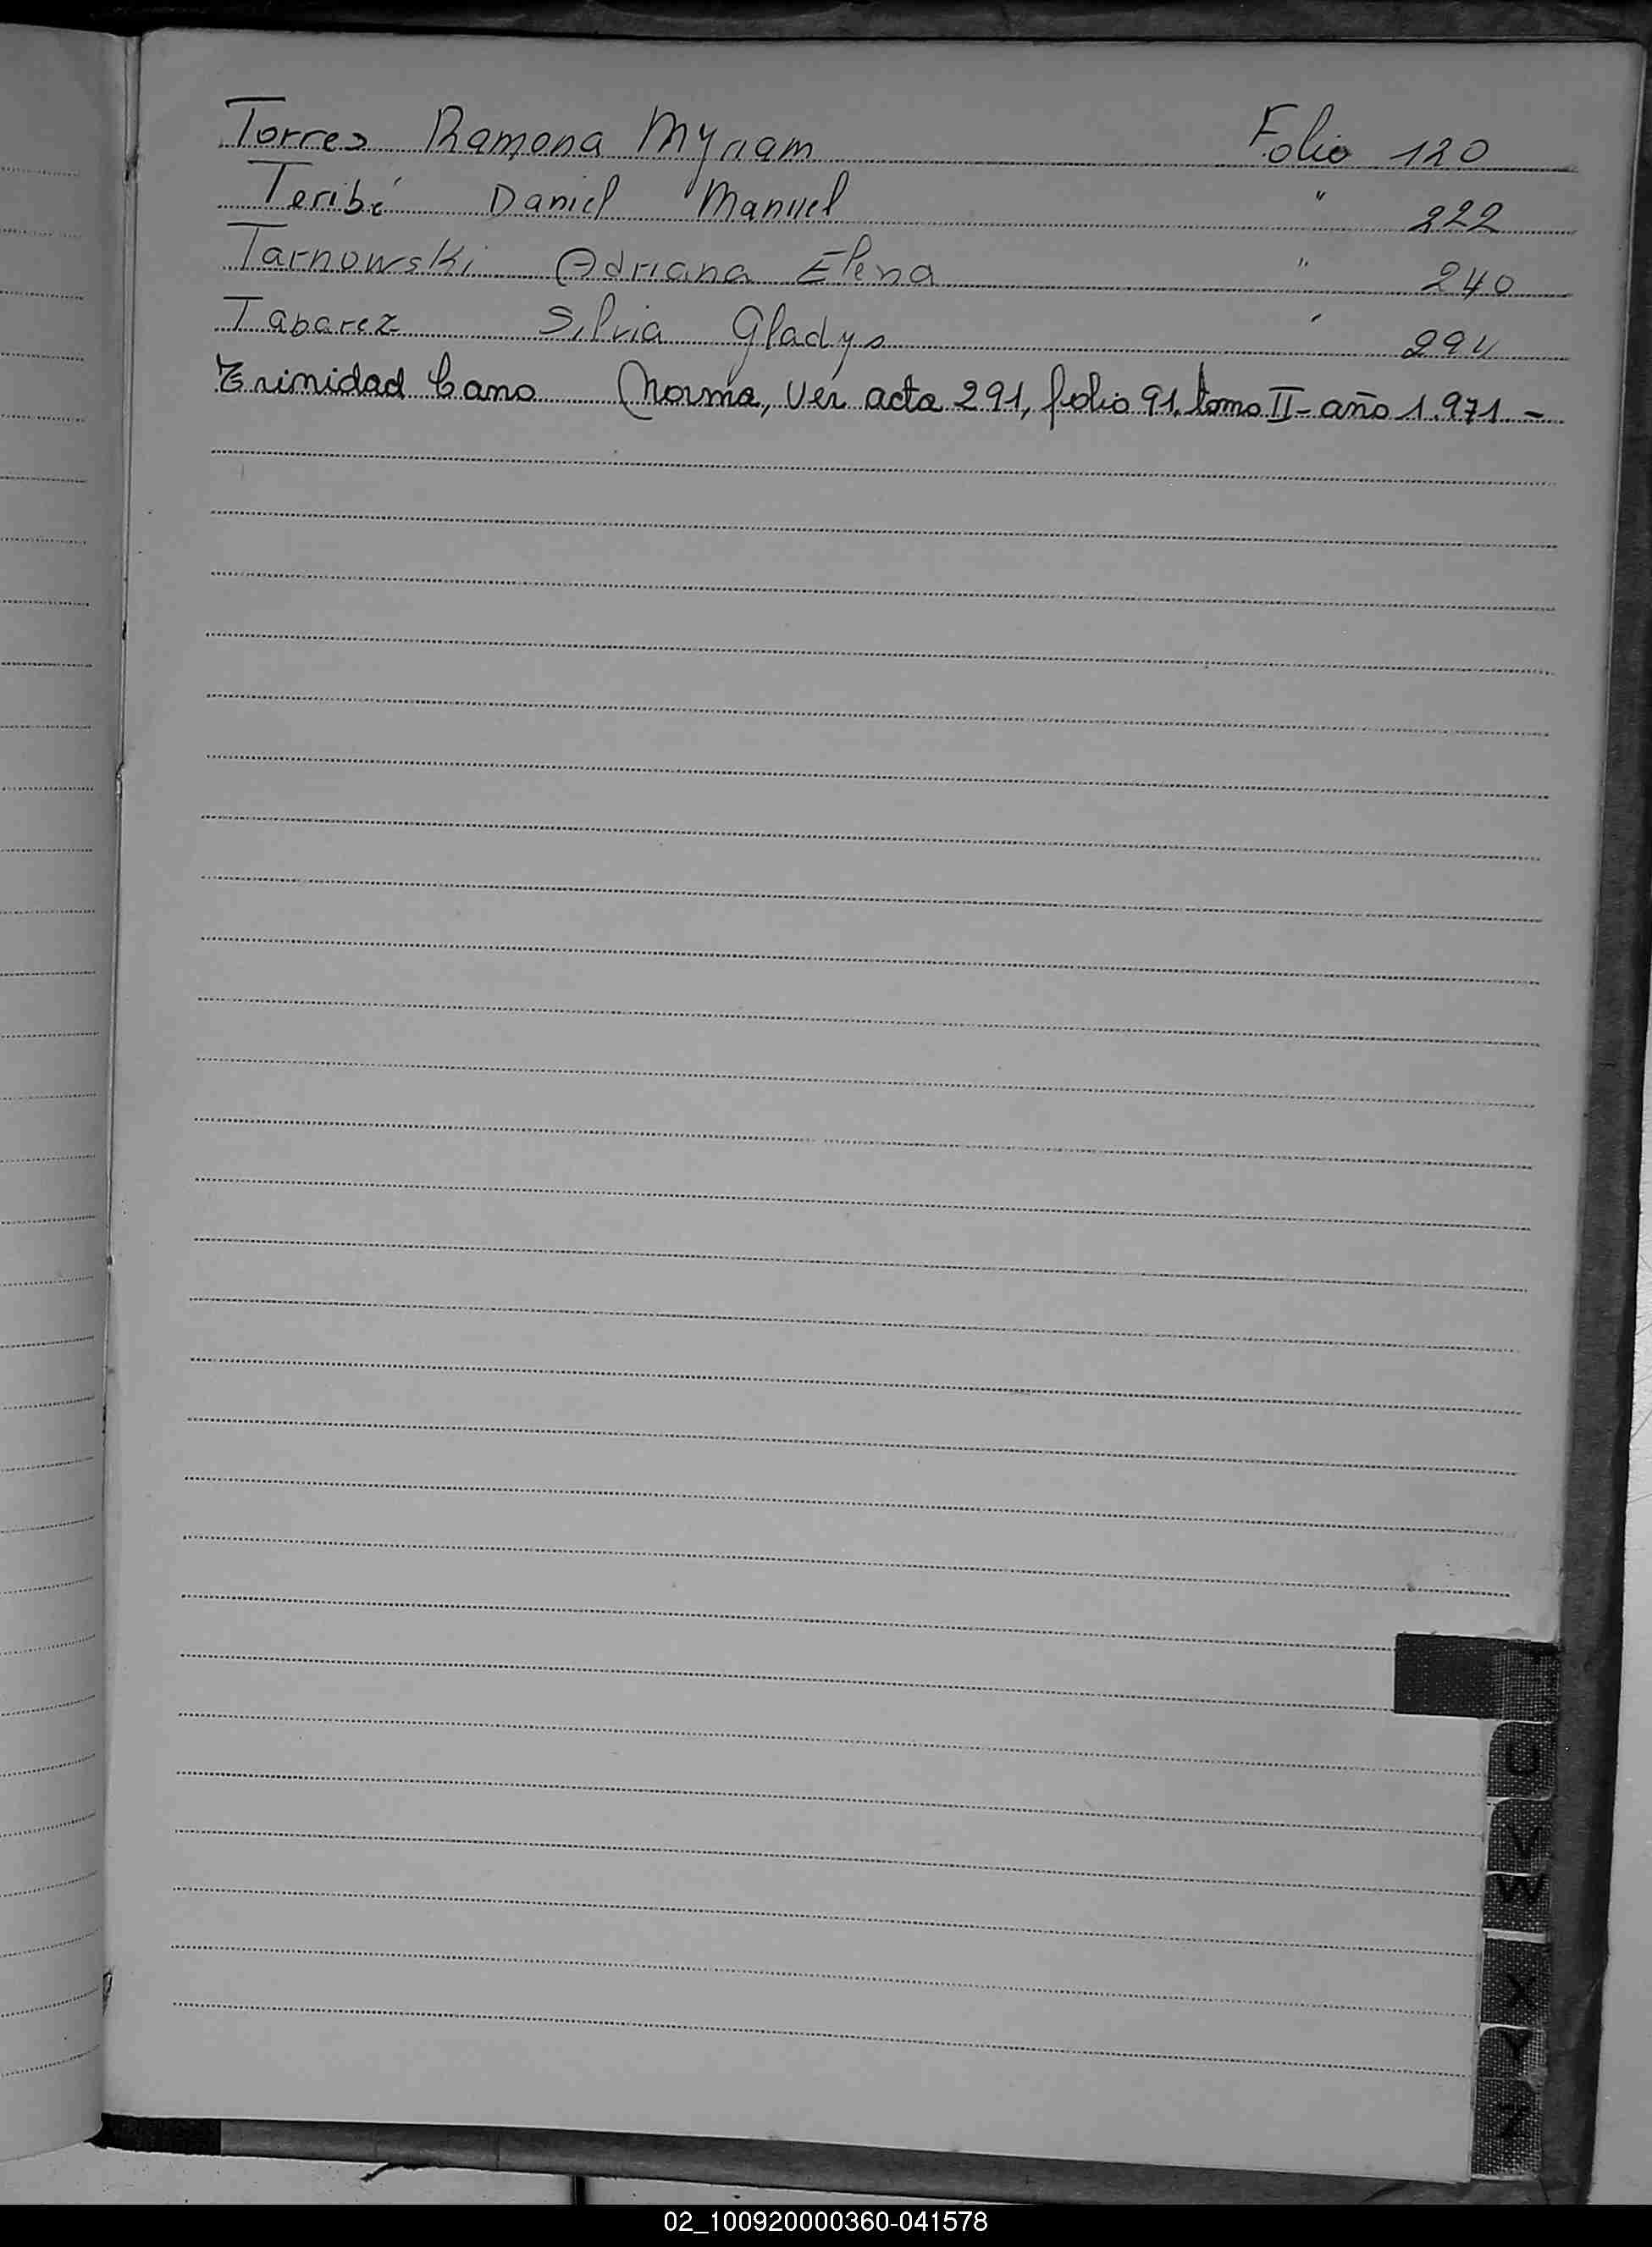 Torres Ramona Myriam Folio 120
Teribé Daniel Manuel " 222
Tarnowski Adriana Elena " 240
Tabarez Silvia Gladys ' 294
Trinidad Cano Norma, ver acta 291, folio 91, tomo II - año 1.971. -
T
U
V
W
X
Y
Z
02_100920000360-041578